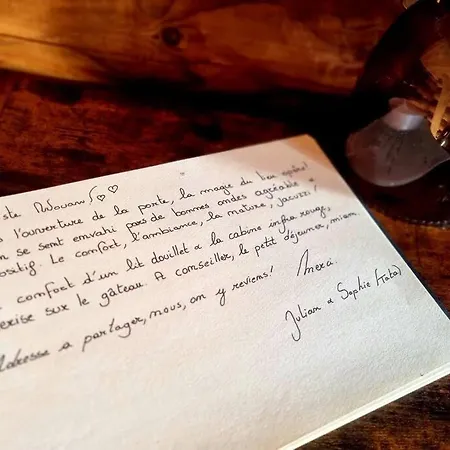 l'ouverture de la porte, la magie du lieu opère!
se sent envahi par de bonnes ondes agréable &
positif. Le comfort, l'ambiance, la nature, jacuzzi!
comfort d'un lit douillet a la cabine infra rouge,
cerise sur le gâteau. A conseiller, le petit déjeuner, miam.
Adresse a partager, nous, on y reviens! Merci.
Julian & Sophie (Tata)